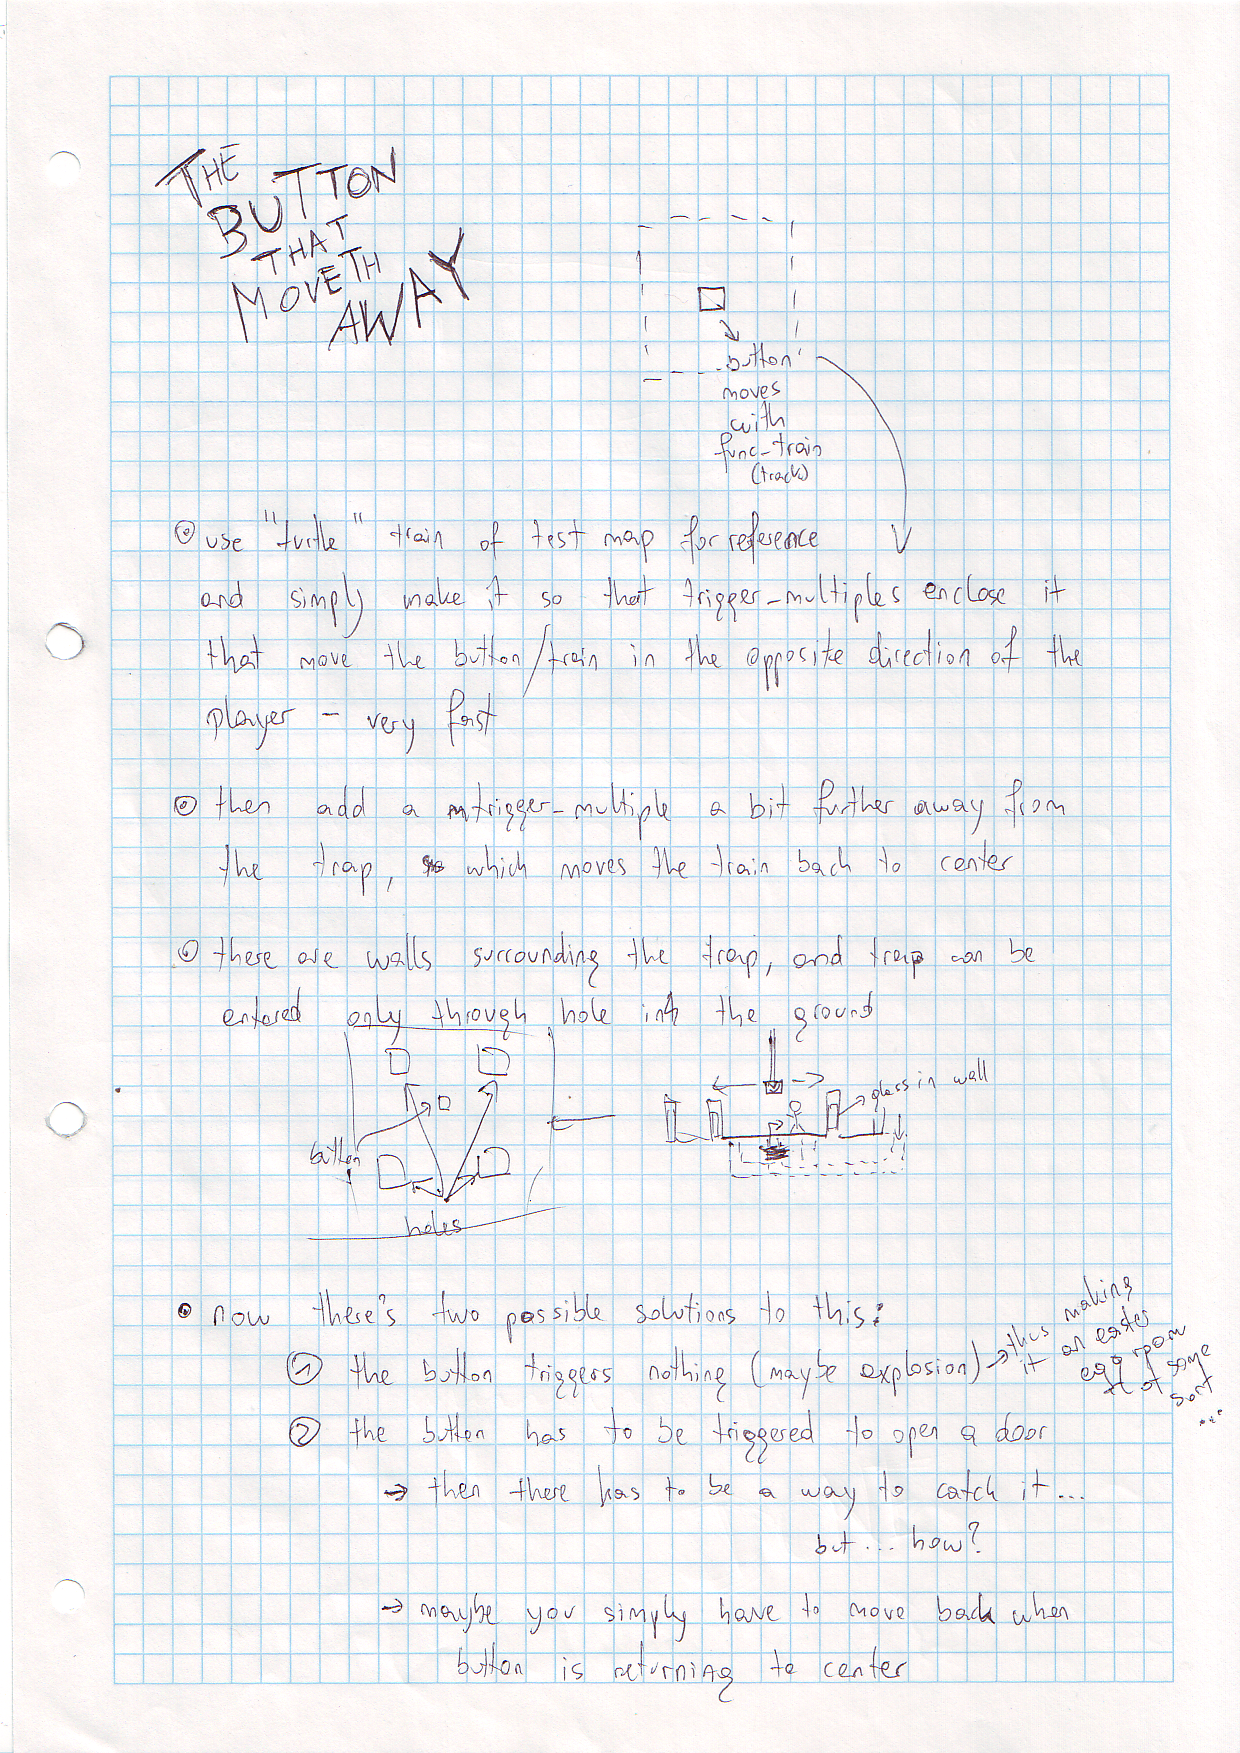 THE
BUTTON
THAT
MOVETH
AWAY
button
moves
with
func-train
(track)
use "turtle" train of test map for reference
and simply make it so that trigger-multiples enclose it
that move the button/train in the opposite direction of the
player - very fast
then add a trigger-multiple a bit further away from
the trap, which moves the train back to center
there are walls surrounding the trap, and trap can be
entered only through hole into the ground
glass in wall
button
holes
now there's two possible solutions to this:
① the button triggers nothing (maybe explosion) → thus making
it an easter
egg room
of some
sort
...
② the button has to be triggered to open a door
→ then there has to be a way to catch it...
but... how?
→ maybe you simply have to move back when
button is returning to center